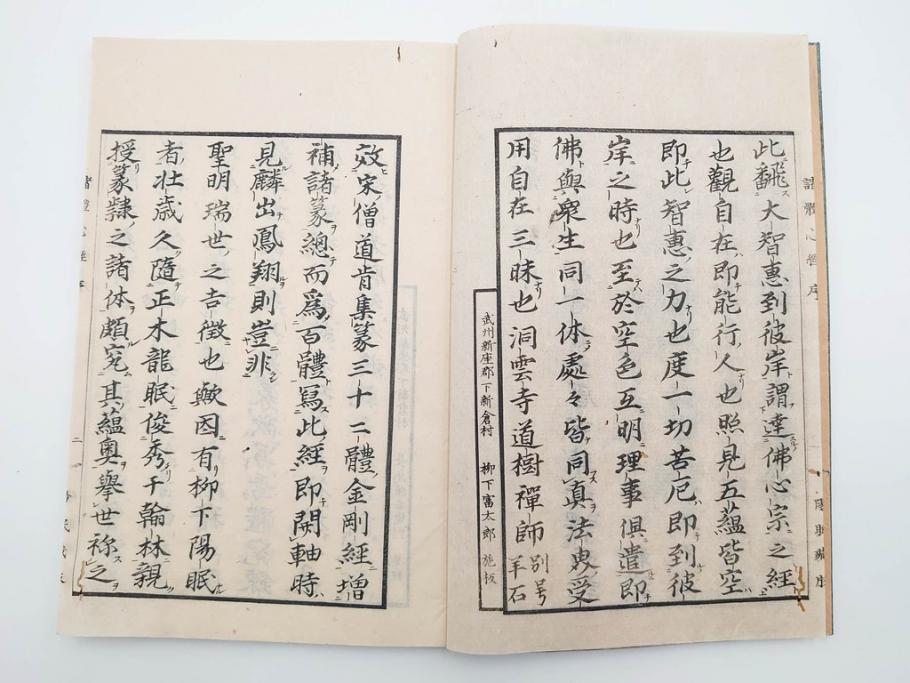 諸體心經序
此飜大智惠到彼岸謂達佛心宗之經
也觀自在即能行人也照見五蘊皆空
即此智惠之力也度一切苦厄即到彼
岸之時也至於空色互明理事俱遣即
佛與衆生同一体處々皆同真法界受
用自在三昧也洞雲寺道樹禪師別号羊石
武州新座郡下新倉村 柳下富太郎 施板
效宋僧道肯集篆三十二體金剛經増
補諸篆總而爲百體寫此經即開軸時
見麟出鳳翔則豈非
聖明瑞世之吉徵也歟因有柳下陽眠
者壮歳久隨正木龍眠俊秀于翰林親
授篆隸之諸体頗究其蘊奧擧世称之